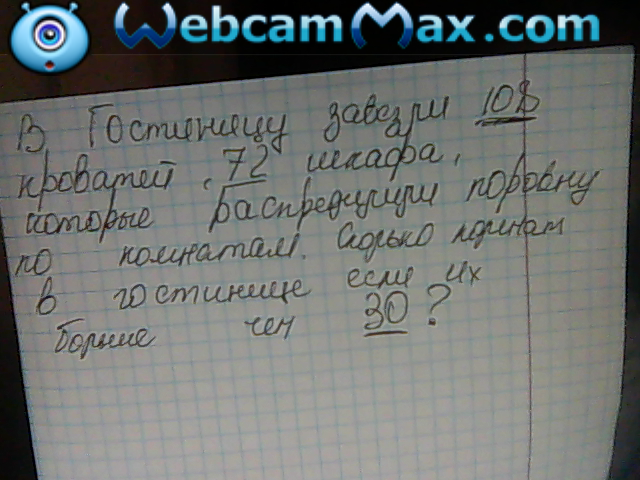 WebcamMax.com
В Гостиницу завезли 108
кроватей, 72 шкафа,
которые распределили поровну
по комнатам. Сколько комнат
в гостинице если их
больше чем 30?